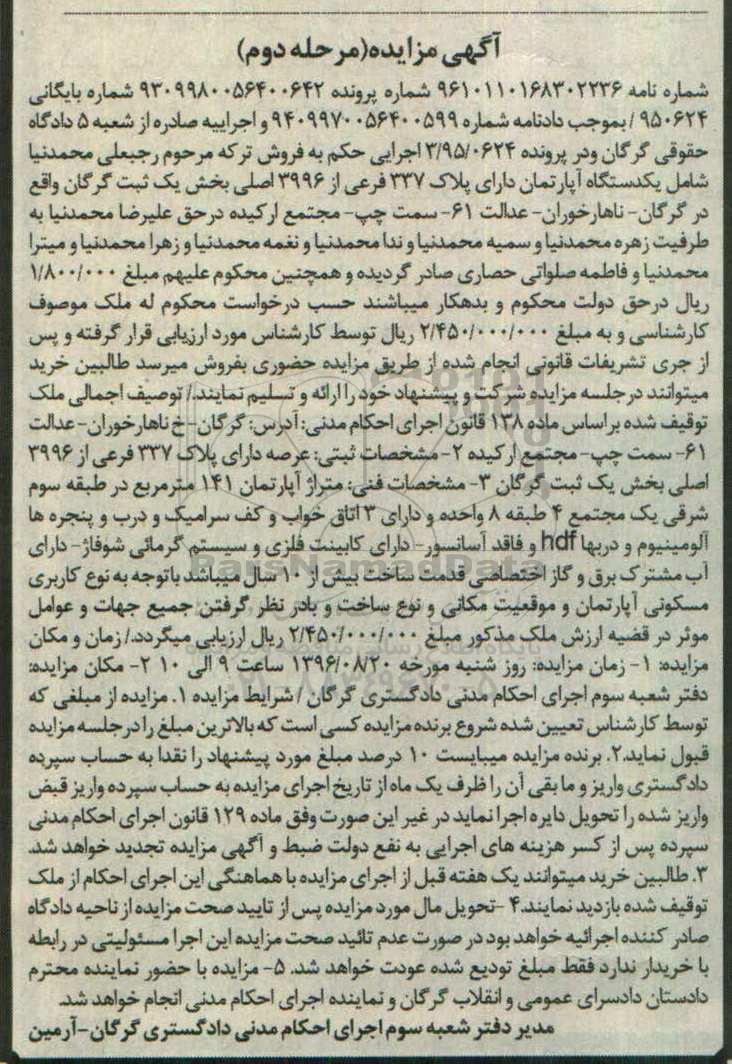 آگهی مزایده(مرحله دوم)
شماره نامه ۹۶۱۰۱۱۰۱۶۸۳۰۲۲۳۶ شماره پرونده ۹۳۰۹۹۸۰۰۵۶۴۰۰۶۴۲ شماره بایگانی
۹۵۰۶۲۴ /بموجب دادنامه شماره ۹۴۰۹۹۷۰۰۵۶۴۰۰۵۹۹ و اجراییه صادره از شعبه ۵ دادگاه
حقوقی گرگان ودر پرونده ۳/۹۵/۰۶۲۴ اجرایی حکم به فروش ترکه مرحوم رجبعلی محمدنیا
شامل یکدستگاه آپارتمان دارای پلاک ۳۳۷ فرعی از ۳۹۹۶ اصلی بخش یک ثبت گرگان واقع
در گرگان- ناهارخوران- عدالت ۶۱- سمت چپ- مجتمع ارکیده درحق علیرضا محمدنیا به
طرفیت زهره محمدنیا و سمیه محمدنیا و ندا محمدنیا و نغمه محمدنیا و زهرا محمدنیا و میترا
محمدنیا و فاطمه صلواتی حصاری صادر گردیده و همچنین محکوم علیهم مبلغ ۱/۸۰۰/۰۰۰
ریال درحق دولت محکوم و بدهکار میباشند حسب درخواست محکوم له ملک موصوف
کارشناسی و به مبلغ ۲/۴۵۰/۰۰۰/۰۰۰ ریال توسط کارشناس مورد ارزیابی قرار گرفته و پس
از جری تشریفات قانونی انجام شده از طریق مزایده حضوری بفروش میرسد طالبین خرید
میتوانند درجلسه مزایده شرکت و پیشنهاد خود را ارائه و تسلیم نمایند./ توصیف اجمالی ملک
توقیف شده براساس ماده ۱۳۸ قانون اجرای احکام مدنی: آدرس: گرگان-خ ناهارخوران-عدالت
۶۱- سمت چپ-مجتمع ارکیده ۲- مشخصات ثبتی: عرصه دارای پلاک ۳۳۷ فرعی از ۳۹۹۶
اصلی بخش یک ثبت گرگان ۳- مشخصات فنی: متراژ آپارتمان ۱۴۱ مترمربع در طبقه سوم
شرقی یک مجتمع ۴ طبقه ۸ واحده و دارای ۳ اتاق خواب و کف سرامیک و درب و پنجره ها
آلومینیوم و دربها hdf و فاقد آسانسور- دارای کابینت فلزی و سیستم گرمائی شوفاژ- دارای
آب مشترک برق و گاز اختصاصی قدمت ساخت بیش از ۱۰ سال میباشد باتوجه به نوع کاربری
مسکونی آپارتمان و موقعیت مکانی و نوع ساخت و بادر نظر گرفتن جمیع جهات و عوامل
موثر در قضیه ارزش ملک مذکور مبلغ ۲/۴۵۰/۰۰۰/۰۰۰ ریال ارزیابی میگردد./ زمان و مکان
مزایده: ۱- زمان مزایده: روز شنبه مورخه ۱۳۹۶/۰۸/۲۰ ساعت ۹ الی ۱۰ ۲- مکان مزایده:
دفتر شعبه سوم اجرای احکام مدنی دادگستری گرگان./ شرایط مزایده ۱. مزایده از مبلغی که
توسط کارشناس تعیین شده شروع برنده مزایده کسی است که بالاترین مبلغ را درجلسه مزایده
قبول نماید.۲. برنده مزایده میبایست ۱۰ درصد مبلغ مورد پیشنهاد را نقدا به حساب سپرده
دادگستری واریز و ما بقی آن را ظرف یک ماه از تاریخ اجرای مزایده به حساب سپرده واریز قبض
واریز شده را تحویل دایره اجرا نماید در غیر این صورت وفق ماده ۱۲۹ قانون اجرای احکام مدنی
سپرده پس از کسر هزینه های اجرایی به نفع دولت ضبط و آگهی مزایده تجدید خواهد شد.
۳. طالبین خرید میتوانند یک هفته قبل از اجرای مزایده با هماهنگی این اجرای احکام از ملک
توقیف شده بازدید نمایند.۴ -تحویل مال مورد مزایده پس از تایید صحت مزایده از ناحیه دادگاه
صادر کننده اجرائیه خواهد بود در صورت عدم تائید صحت مزایده این اجرا مسئولیتی در رابطه
با خریدار ندارد فقط مبلغ تودیع شده عودت خواهد شد. ۵- مزایده با حضور نماینده محترم
دادستان دادسرای عمومی و انقلاب گرگان و نماینده اجرای احکام مدنی انجام خواهد شد.
مدیر دفتر شعبه سوم اجرای احکام مدنی دادگستری گرگان-آرمین